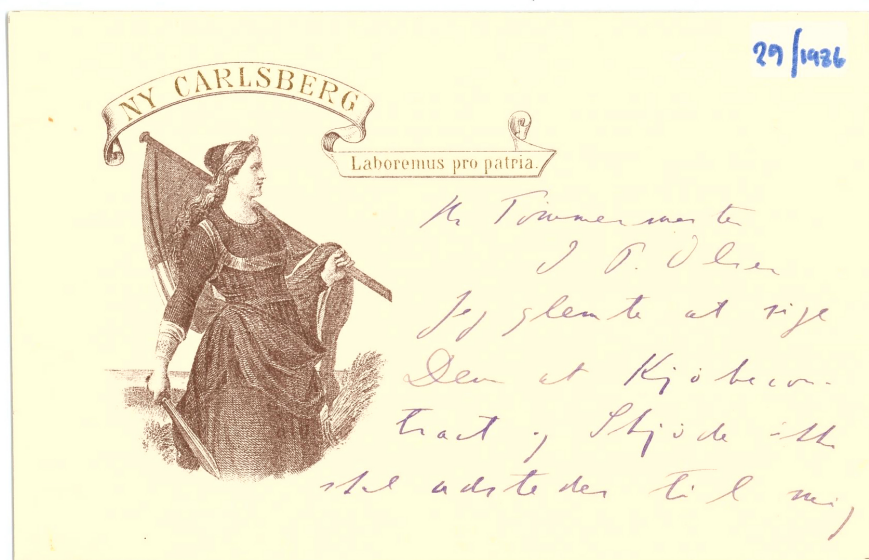 29/1986
NY CARLSBERG
Laboremus pro patria.
Hr Tömmermester
J. P. Olsen
Jeg glemte at sige
Dem at Kjöbecon-
tract og Skjöde ikke
skal udstedes til mig